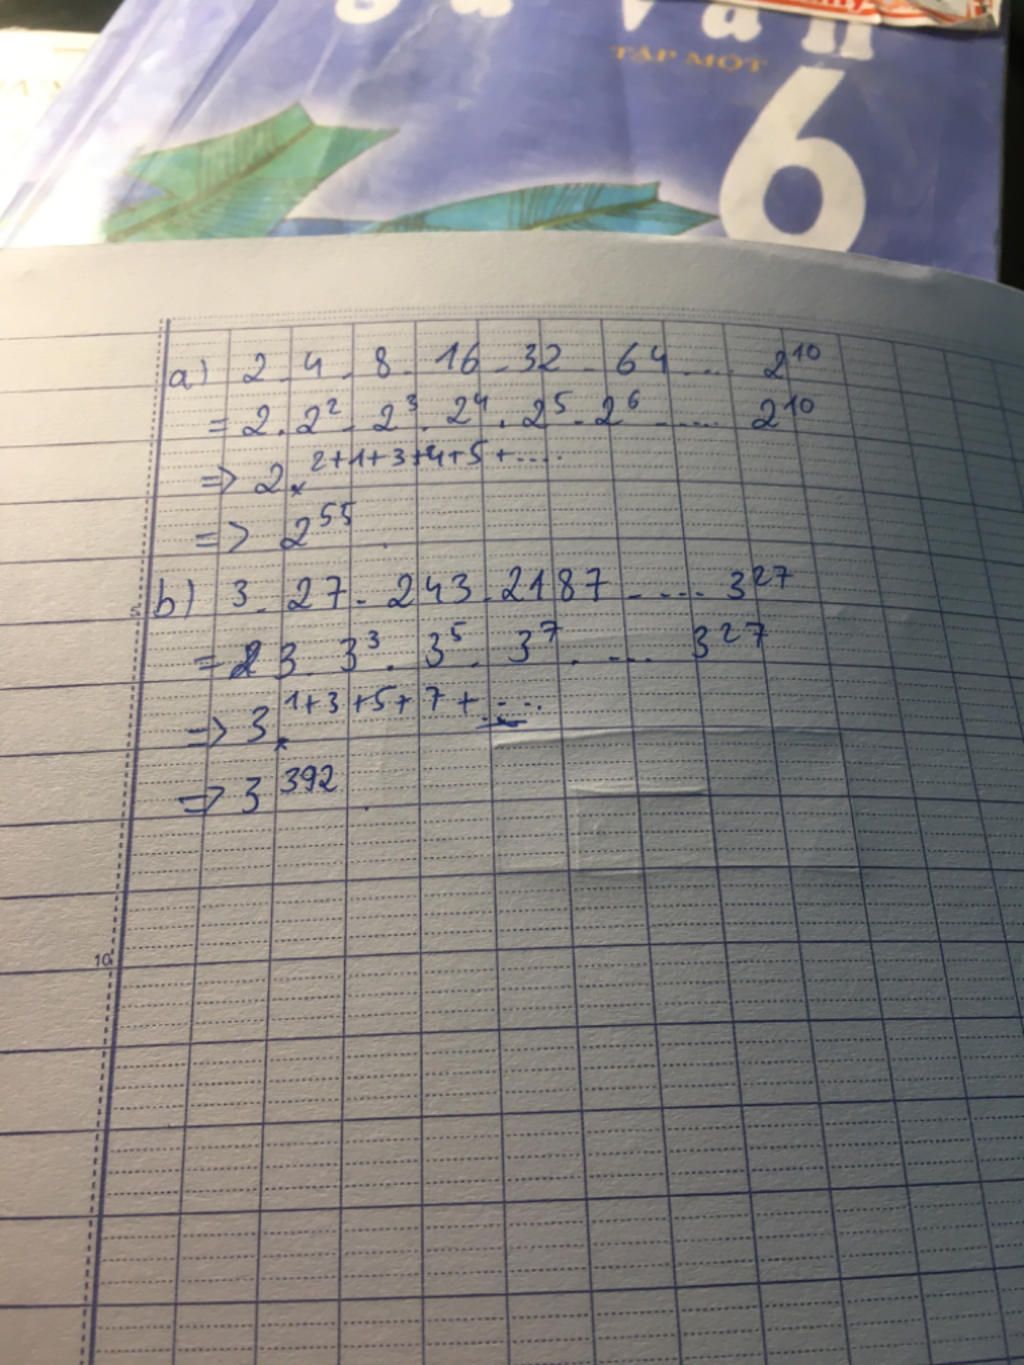 TẬP MỘT
6
a) 2 . 4 . 8 . 16 . 32 . 64 .... 2^10
= 2 . 2^2 . 2^3 . 2^4 . 2^5 . 2^6 ..... 2^10
=> 2^2+1+3+4+5+....
=> 2^55
b) 3 . 27 . 243 . 2187 .... 3^27
= 3 . 3^3 . 3^5 . 3^7 .... 3^27
=> 3^1+3+5+7+....
=> 3^392
10